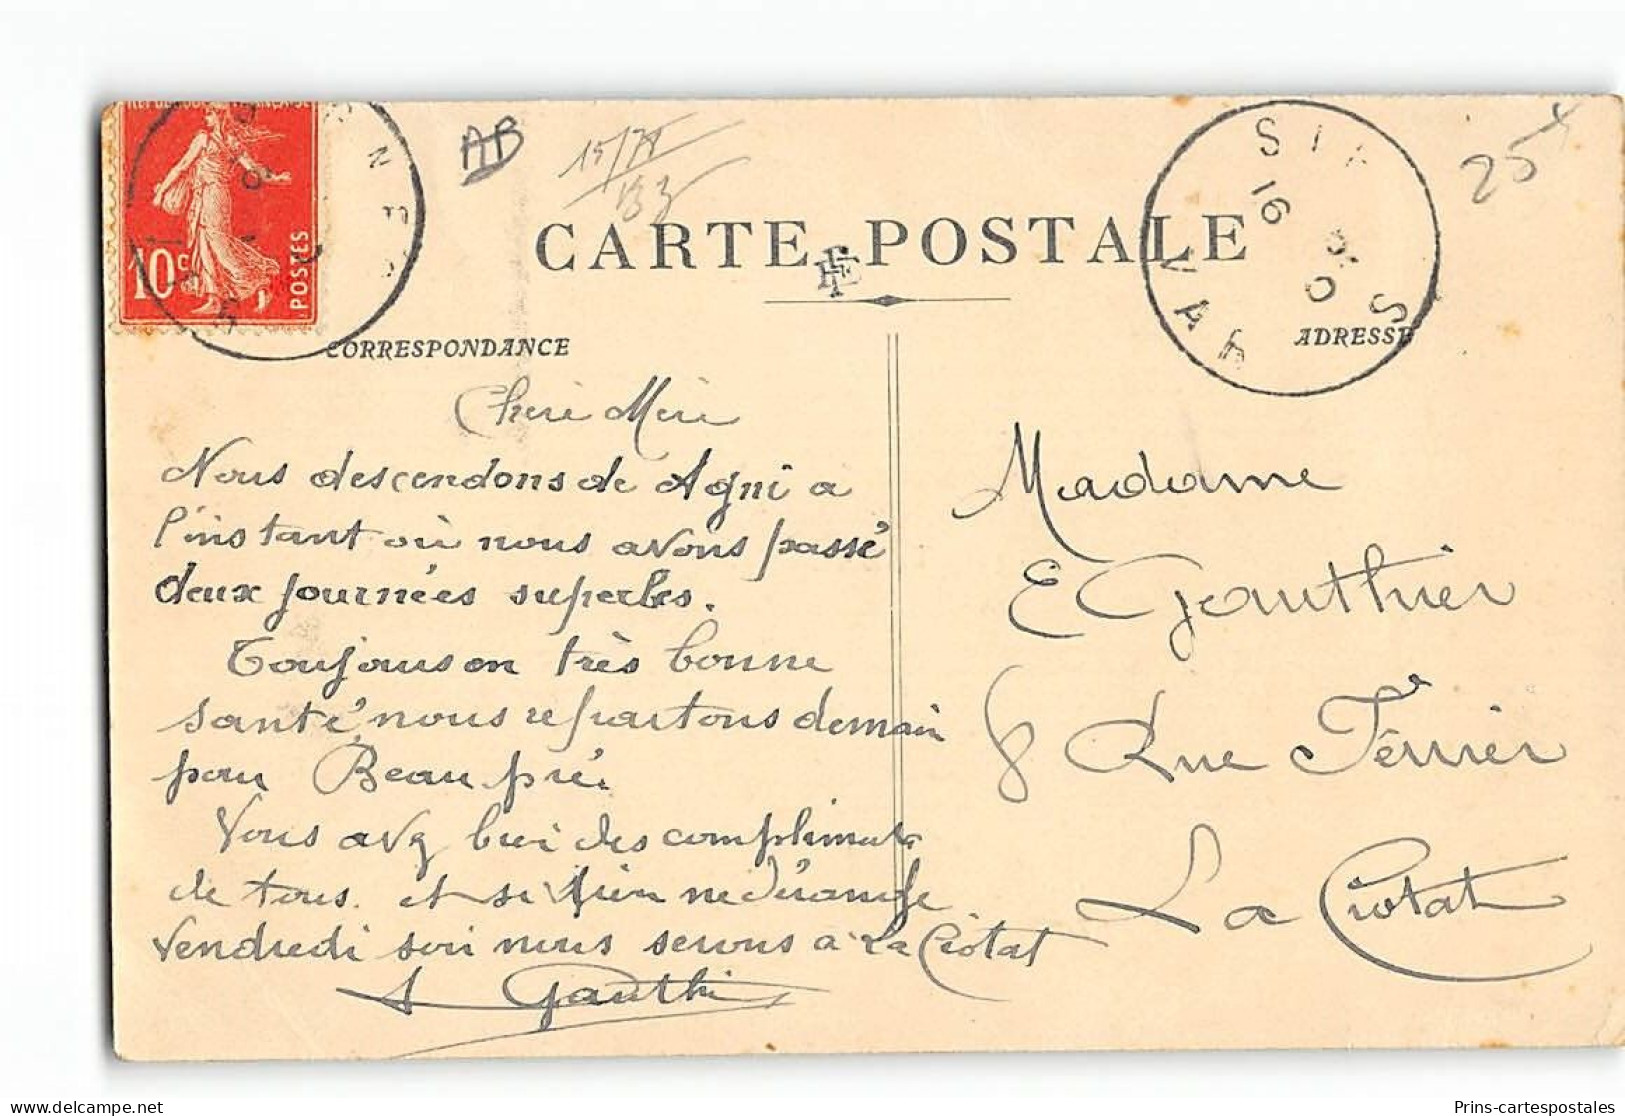 AB
15/
133
25
CARTE POSTALE
FE
10c
POSTES
SI
S
VAR
16
CORRESPONDANCE
ADRESSE
Chere Mere
Nous descendons de Agni a
l'instant où nous avons passé
deux journées superbes.
Toujours en très bonne
santé, nous repartons demain
pour Beaupré.
Vous avez bien des compliments
de tous. et si rien ne dérange
Vendredi soir nous serons à La Ciotat
A Gauthier
Madame
E Gauthier
8 Rue Ferrier
La Ciotat
Prins-cartespostales.delcampe.net
Prins-cartespostales